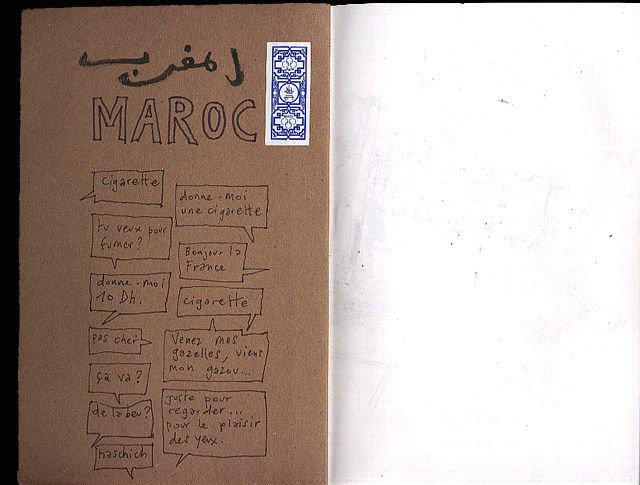 المغرب
MAROC
cigarette
tu veux pour
fumer?
donne-moi
10 Dh.
pas cher
ça va?
de la beu?
haschich
donne-moi
une cigarette
Bonjour la
France
cigarette
Venez mes
gazelles, viens
mon gazou...
juste pour
regarder...
pour le plaisir
des yeux.